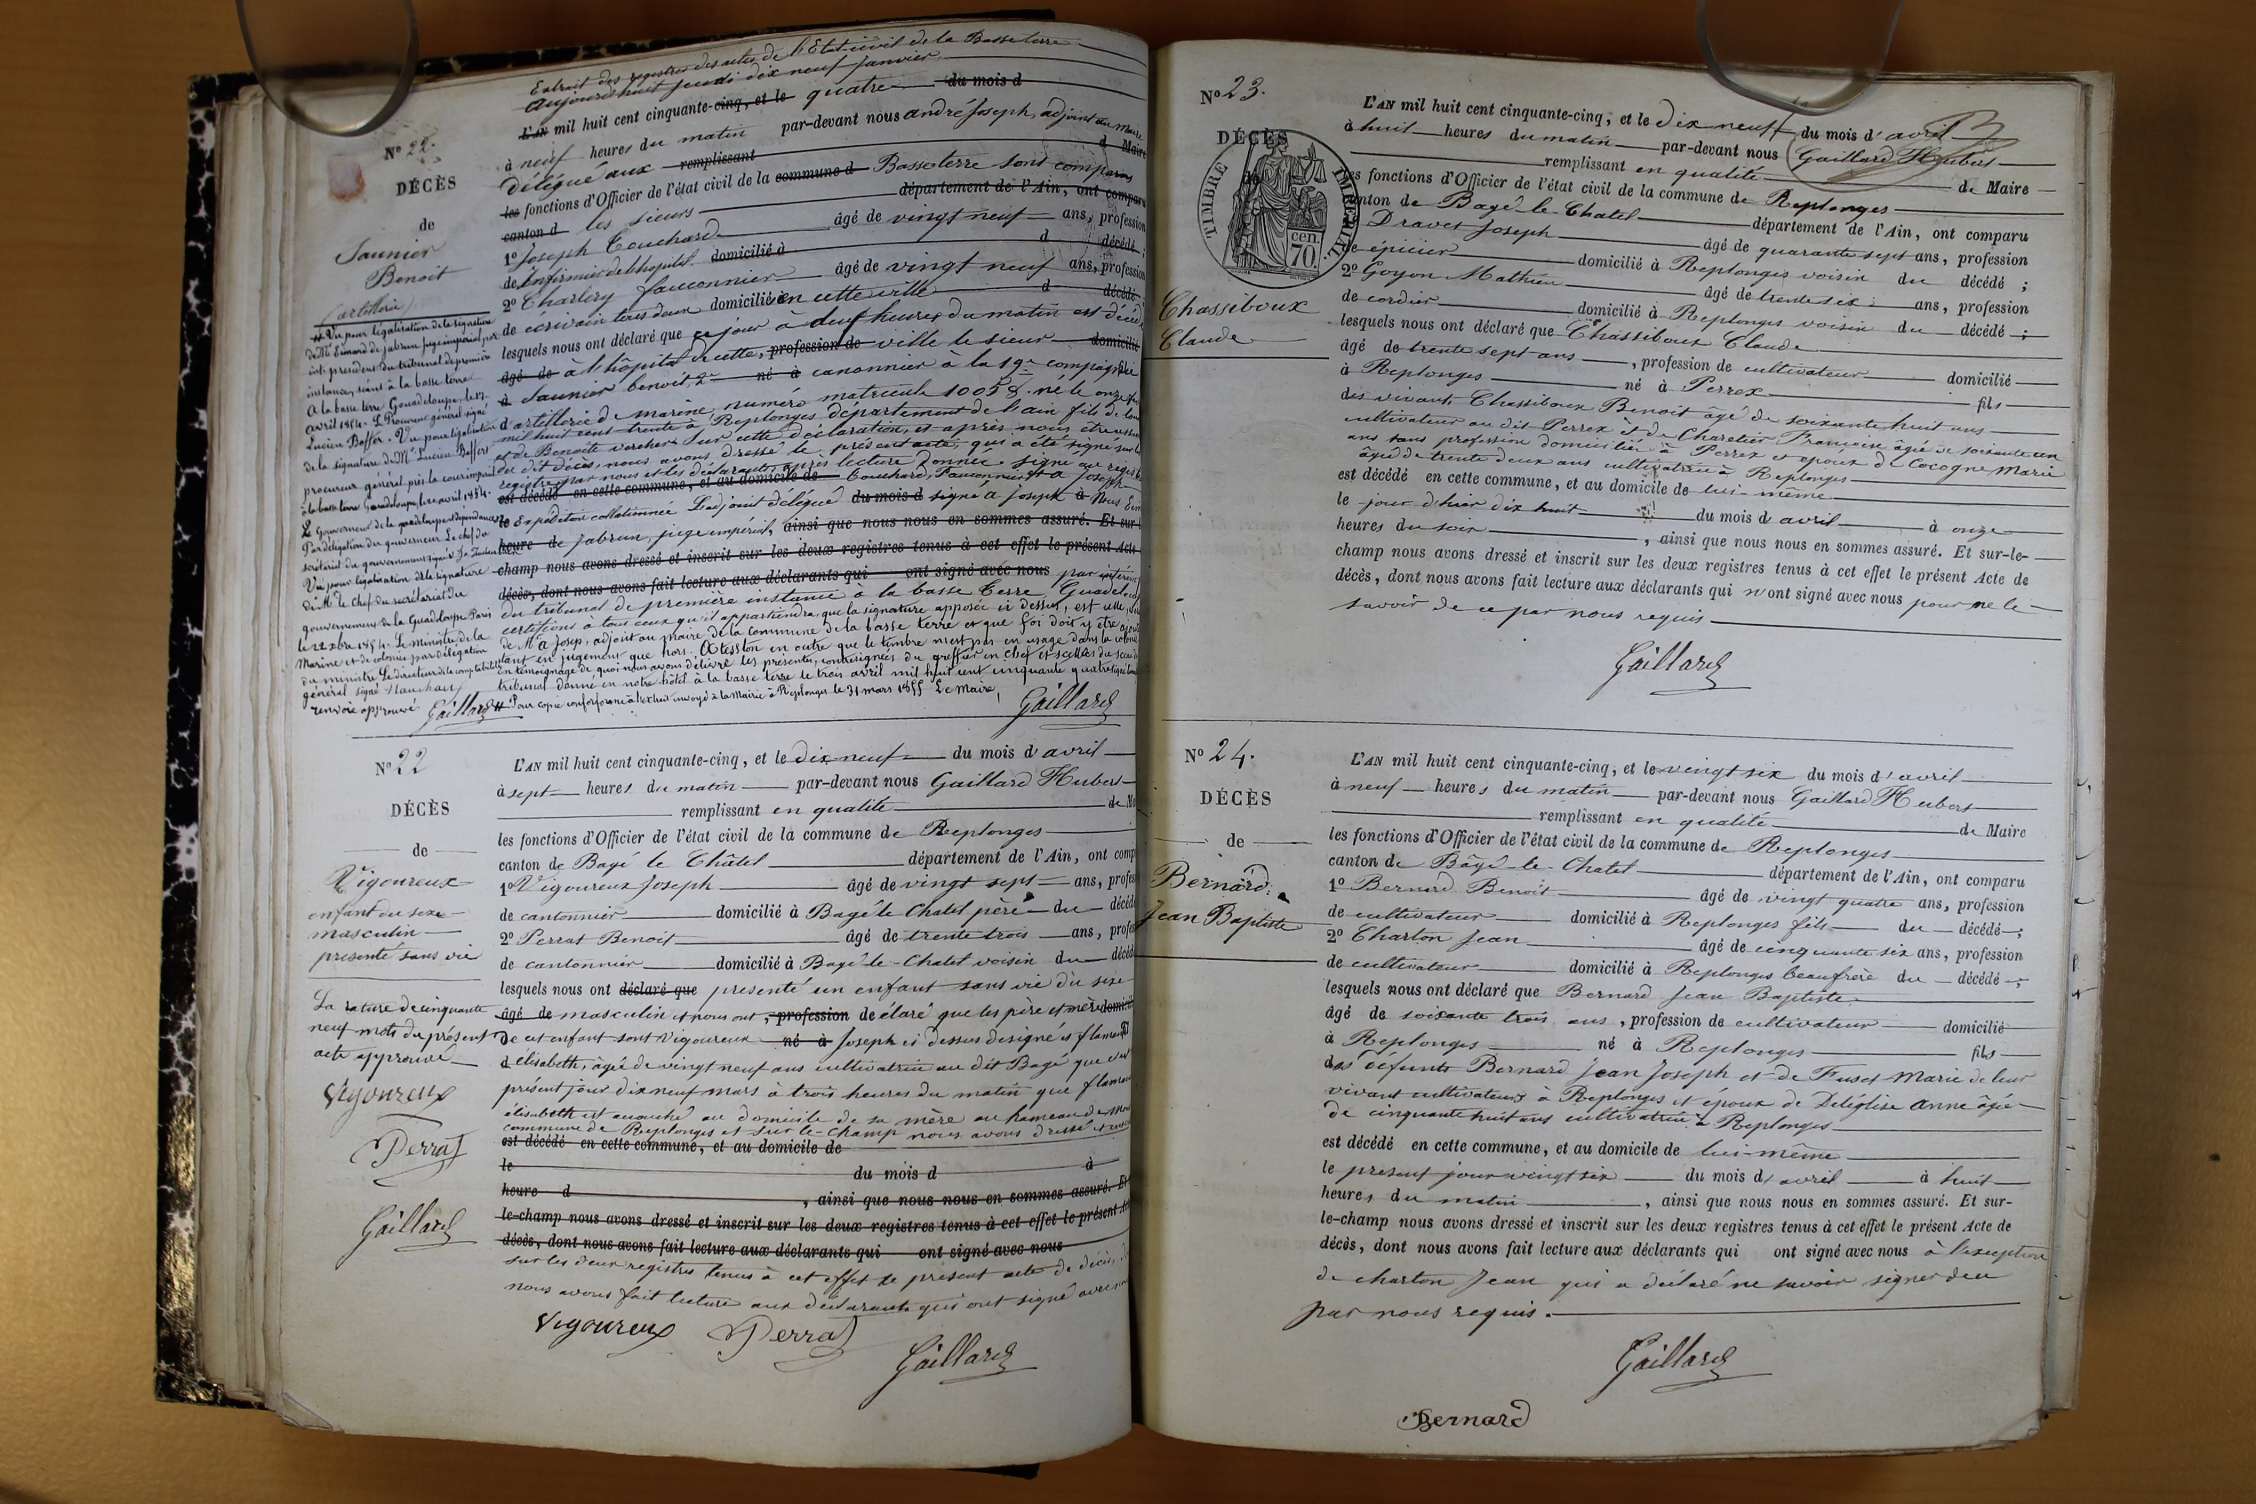 Extrait des registres des actes de l'Etat-civil de la Basse terre
aujourd'huit jeudi dix neuf janvier
L'AN mil huit cent cinquante-cinq, et le quatre du mois d
No 22.
à neuf heures du matin par-devant nous andré Joseph, adjoint au maire
DÉCÈS
délégué aux remplissant d Maire
les fonctions d'Officier de l'état civil de la commune d Basse terre sont comparus
de
canton d les sieurs département de l'Ain, ont comparu
Saunier
Benoit
(artillerie)
1o Joseph Couchard âgé de vingt neuf ans, profession
de Infirmier de l'hopital domicilié à d décédé ;
2o Charlery fauconnier âgé de vingt neuf ans, profession
de écrivain tous deux domicilié en cette ville d décédé
lesquels nous ont déclaré que ce jour à deux heures du matin est décédé
âgé de à l'hôpital de cette, profession de ville le sieur domicilié
à Saunier benoit, 2e né à canonnier à la 19e compagnie
d'artillerie de marine, numéro matricule 10058. né le onze
mil huit cent trente à Replonges département de l'ain fils de
et de Benoite Sur cette déclaration, et après nous être assuré
du dit décès, nous avons dressé le présent acte, qui a été signé sur le
registre par nous et les déclarants après lecture donnée. signé au registre
est décédé en cette commune, et au domicile de Couchard, Fauconnier et a Joseph
le Expedition collationnée L'adjoint délégué du mois d signé a Joseph à Nous
heure de jabrun, juge impérial, ainsi que nous nous en sommes assuré. Et sur
champ nous avons dressé et inscrit sur les deux registres tenus à cet effet le présent Acte
décès, dont nous avons fait lecture aux déclarants qui ont signé avec nous par intérim
du tribunal de première instance à la basse Terre, Guadeloupe
certifions à tous ceux qu'il appartiendra, que la signature apposée ci dessus, est celle
de Mr a Josep, adjoint au maire de la commune de la basse terre et que foi doit y être
tant en jugement que hors. Attestton en outre que le timbre n'est pas en usage dans la colonie
En témoignage de quoi nous avons délivré les présentes, contresignées du greffier en chef et scellées du sceau du
tribunal donné en notre hôtel à la basse terre le trois avril mil huit cent cinquante quatre
Pour copie conforforme à l'extrait envoyé à la Mairie de Replonges le 31 mars 1855 Le Maire,
Gaillard
# Vu pour légalisation de la signature
de Mr Eimard de jabrun juge impérial par
int. président du tribunal de première
instance, séant à la basse terre
A la basse terre Guadeloupe, le
avril 1854. Le Procureur général signé
Lucien Baffer. Vu pour légalisation
de la signature de Mr Lucien Baffer
procureur général près la cour impériale
à la basse terre Guadeloupe, le avril 1854.
Le Gouverneur de la guadeloupe et dépendances
Par délégation du gouverneur Le chef du
secrétariat du gouvernement signé
Vu pour légalisation de la signature
de Mr le Chef du secrétariat du
gouvernement de la Guadeloupe Paris
le 22 xbre 1854. Le ministre de la
Marine et des colonies par délégation
du ministre Le directeur de la comptabilité
général signé
renvoie approuvé Gaillard #
No 22
DÉCÈS
de
Vigoureux
enfant du sexe
masculin
presenté sans vie
La rature de cinquante
neuf mots du présent
acte approuvé
Vigoureux
Perrat
Gaillard
L'AN mil huit cent cinquante-cinq, et le dix neuf du mois d'avril
à sept heures du matin par-devant nous Gaillard Hubert
remplissant en qualité de
les fonctions d'Officier de l'état civil de la commune de Replonges
canton de Bagé le Châtel département de l'Ain, ont
1o Vigoureux Joseph âgé de vingt sept ans,
de cantonnier domicilié à Bagé le Chatel père du
2o Perrat Benoit âgé de trente trois ans,
de cantonnier domicilié à Bagé-le-Chatel voisin du
lesquels nous ont déclaré que presenté un enfant sans vie du sexe
âgé de masculin et nous ont, profession de déclaré que les père et mère
de cet enfant sont Vigoureux né à Joseph ci dessus designé et flament
d elisabeth, âgée de vingt neuf ans cultivatrice au dit Bagé que c'est
présent jour dix neuf mars à trois heures du matin que flament
élisabeth est accouché au domicile de sa mère au hameau de
commune de Replonges et sur-le-champ nous avons dressé et
est décédé en cette commune, et au domicile de
le du mois d à
heure d , ainsi que nous nous en sommes assuré. Et
le-champ nous avons dressé et inscrit sur les deux registres tenus à cet effet le présent
décès, dont nous avons fait lecture aux déclarants qui ont signé avec nous
sur les deux registres tenus à cet effet le présent acte de décès,
nous avons fait lecture aux déclarants qui ont signé avec
Vigoureux Perrat
Gaillard
No 23.
DÉCÈS
TIMBRE IMPÉRIAL.
cen.
70
Chassiboux
Claude
L'AN mil huit cent cinquante-cinq, et le dix neuf du mois d'avril
à huit heures du matin par-devant nous Gaillard Hubert
remplissant en qualité de Maire
les fonctions d'Officier de l'état civil de la commune de Replonges
canton de Bagé-le-Chatel département de l'Ain, ont comparu
Dravet Joseph âgé de quarante sept ans, profession
de épicier domicilié à Replonges voisin du décédé ;
2o Goyon Mathieu âgé de trente six ans, profession
de cordier domicilié à Replonges voisin du décédé ;
lesquels nous ont déclaré que Chassiboux Claude
âgé de trente sept ans , profession de cultivateur domicilié
à Replonges né à Perrex fils
des vivants Chassiboux Benoit âgé de soixante huit ans
cultivateur au dit Perrex et de Charetier Françoise âgée de soixante un
ans sans profession domiciliés à Perrex et époux de Cocogne Marie
âgée de trente deux ans cultivatrice à Replonges
est décédé en cette commune, et au domicile de lui-même
le jour d'hier dix huit du mois d'avril à onze
heures du soir , ainsi que nous nous en sommes assuré. Et sur-le-
champ nous avons dressé et inscrit sur les deux registres tenus à cet effet le présent Acte de
décès, dont nous avons fait lecture aux déclarants qui n'ont signé avec nous pour ne le
savoir de ce par nous requis
Gaillard
No 24.
DÉCÈS
de
Bernard
Jean Baptiste
L'AN mil huit cent cinquante-cinq, et le vingt six du mois d'avril
à neuf heures du matin par-devant nous Gaillard Hubert
remplissant en qualité de Maire
les fonctions d'Officier de l'état civil de la commune de Replonges
canton de Bâgé-le-Chatel département de l'Ain, ont comparu
1o Bernard Benoit âgé de vingt quatre ans, profession
de cultivateur domicilié à Replonges fils du décédé ;
2o Charton Jean âgé de cinquante six ans, profession
de cultivateur domicilié à Replonges beaufrère du décédé ;
lesquels nous ont déclaré que Bernard Jean Baptiste
âgé de soixante trois ans , profession de cultivateur domicilié
à Replonges né à Replonges fils
des défunts Bernard Jean Joseph et de Fuset Marie de leur
vivant cultivateurs à Replonges et époux de Deléglise Anne âgée
de cinquante huit ans cultivatrice à Replonges
est décédé en cette commune, et au domicile de lui-même
le présent jour vingt six du mois d'avril à huit
heures du matin , ainsi que nous nous en sommes assuré. Et sur-
le-champ nous avons dressé et inscrit sur les deux registres tenus à cet effet le présent Acte de
décès, dont nous avons fait lecture aux déclarants qui ont signé avec nous à l'exception
de charton Jean qui a déclaré ne savoir signer de ce
par nous requis.
Gaillard
Bernard